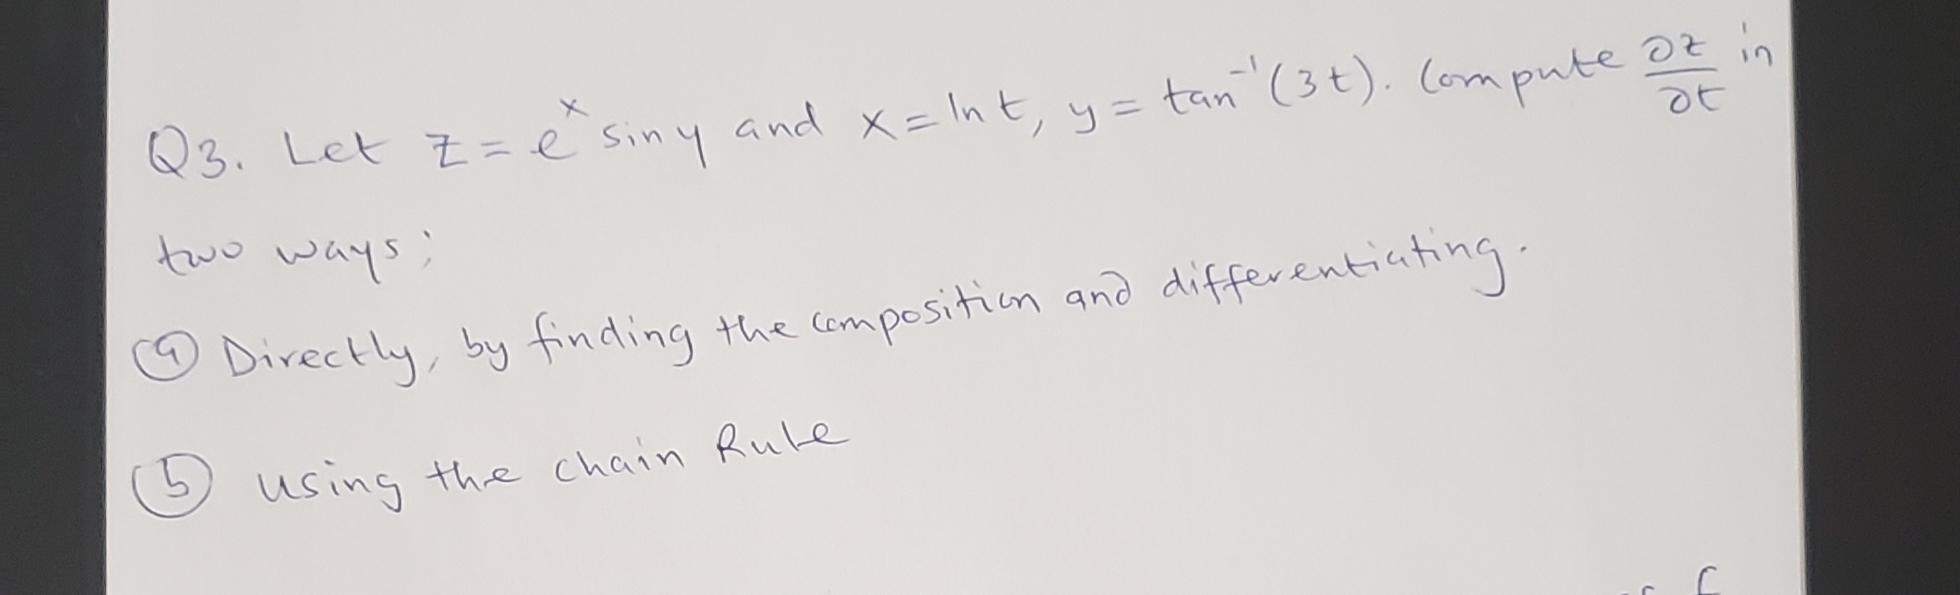 Q3. Let z = e^x sin y and x = ln t, y = tan^-1 (3t). Compute ∂z/∂t in
two ways;
(a) Directly, by finding the composition and differentiating.
(b) using the chain Rule